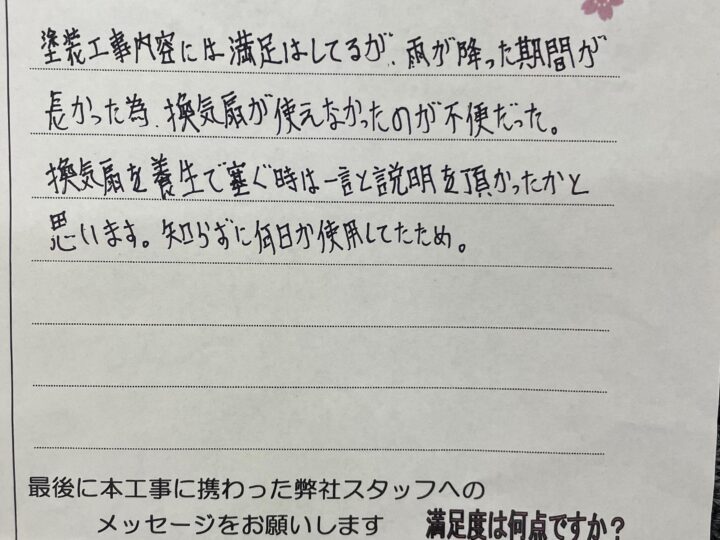 塗装工事内容には満足はしてるが、雨が降った期間が
長かった為、換気扇が使えなかったのが不便だった。
換気扇を養生で塞ぐ時は一言と説明を頂かったかと
思います。知らずに何日か使用してたため。
最後に本工事に携わった弊社スタッフへの
メッセージをお願いします 満足度は何点ですか?